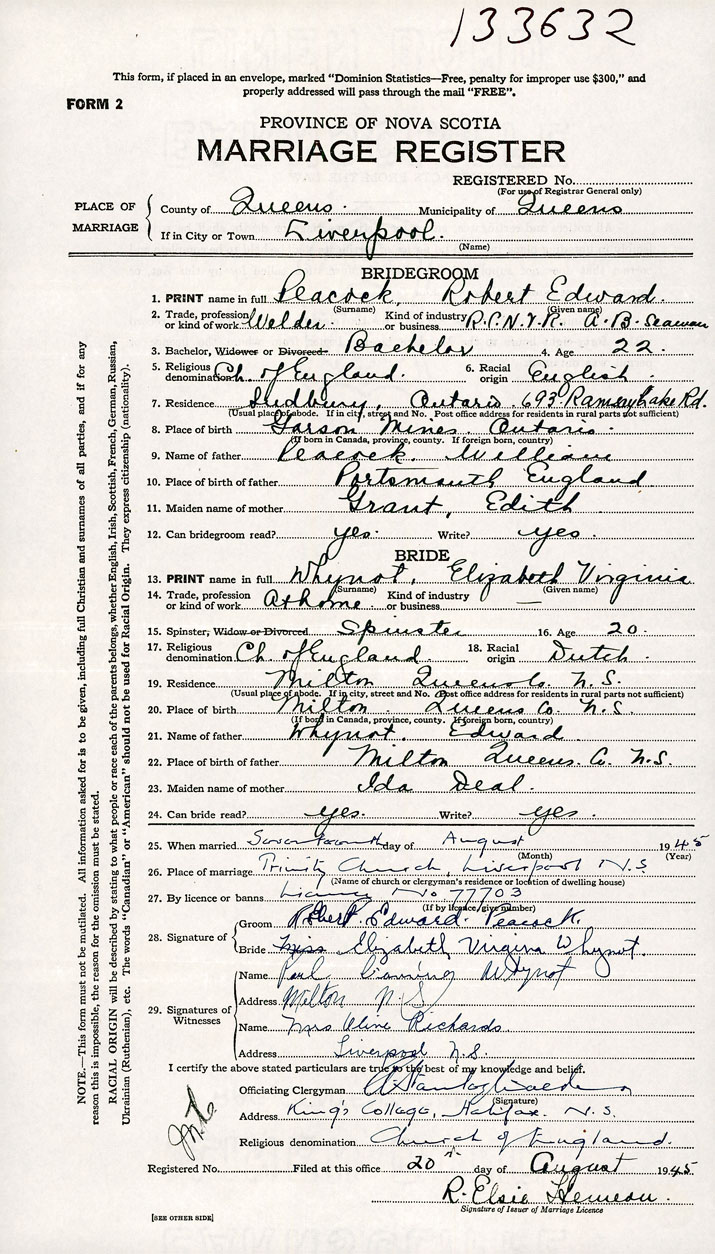 133632
This form, if placed in an envelope, marked “Dominion Statistics—Free, penalty for improper use $300,” and
properly addressed will pass through the mail “FREE”.
FORM 2
PROVINCE OF NOVA SCOTIA
MARRIAGE REGISTER
REGISTERED No.
(For use of Registrar General only)
PLACE OF MARRIAGE
County of Queens. Municipality of Queens
If in City or Town Liverpool.
(Name)
BRIDEGROOM
1. PRINT name in full Peacock, Robert Edward.
(Surname) (Given name)
2. Trade, profession or kind of work Welder. Kind of industry or business R.C.N.V.R. A.B. Seaman
3. Bachelor, Widower or Divorced Bachelor 4. Age 22.
5. Religious denomination Ch. of England. 6. Racial origin English.
7. Residence Sudbury, Ontario. 693 Ramsey Lake Rd.
(Usual place of abode. If in city, street and No. Post office address for residents in rural parts not sufficient)
8. Place of birth Garson Mines Ontario.
(If born in Canada, province, county. If foreign born, country)
9. Name of father Peacock. William
10. Place of birth of father Portsmouth England
11. Maiden name of mother Grant, Edith
12. Can bridegroom read? yes. Write? yes.
BRIDE
13. PRINT name in full Whynot, Elizabeth Virginia
(Surname) (Given name)
14. Trade, profession or kind of work At home. Kind of industry or business —
15. Spinster, Widow or Divorced Spinster 16. Age 20.
17. Religious denomination Ch. of England 18. Racial origin Dutch.
19. Residence Milton Queens Co. N.S.
(Usual place of abode. If in city, street and No. Post office address for residents in rural parts not sufficient)
20. Place of birth Milton Queens Co. N.S.
(If born in Canada, province, county. If foreign born, country)
21. Name of father Whynot. Edward
22. Place of birth of father Milton Queens. Co. N.S.
23. Maiden name of mother Ida Deal.
24. Can bride read? yes. Write? yes.
25. When married Seventeenth day of August 1945
(Month) (Year)
26. Place of marriage Trinity Church, Liverpool N.S
(Name of church or clergyman's residence or location of dwelling house)
27. By licence or banns License No 77703
(If by licence give number)
28. Signature of
Groom Robert Edward. Peacock.
Bride Miss Elizabeth Virginia Whynot.
29. Signatures of Witnesses
Name Paul Whynot
Address Milton N.S
Name Mrs Olive Richards
Address Liverpool N.S.
I certify the above stated particulars are true to the best of my knowledge and belief.
Officiating Clergyman
(Signature)
Address King's College, Halifax. N.S.
Religious denomination Church of England.
Registered No. Filed at this office 20th day of August 1945
R. Elsie
Signature of Issuer of Marriage Licence
[SEE OTHER SIDE]
NOTE.—This form must not be mutilated. All information asked for is to be given, including full Christian and surnames of all parties, and if for any
reason this is impossible, the reason for the omission must be stated.
RACIAL ORIGIN will be described by stating to what people or race each of the parents belongs, whether English, Irish, Scottish, French, German, Russian,
Ukrainian (Ruthenian), etc. The words “Canadian” or “American” should not be used for Racial Origin. They express citizenship (nationality).